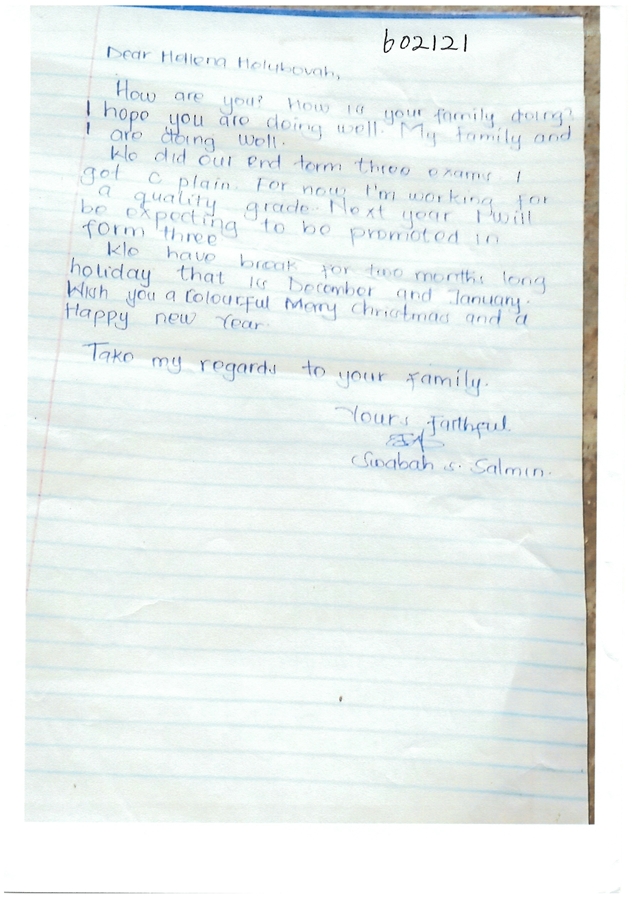 602121
Dear Hellena Holubovah,
How are you? How is your family doing?
I hope you are doing well. My family and
I are doing well.
We did our end term three exams I
got C plain. For now I'm working for
a quality grade. Next year I will
be expecting to be promoted in
form three
We have break for two months long
holiday that is December and January.
Wish you a Colourful Mary Christmas and a
Happy new Year.
Take my regards to your family.
Yours faithful
Swabah S. Salmin.